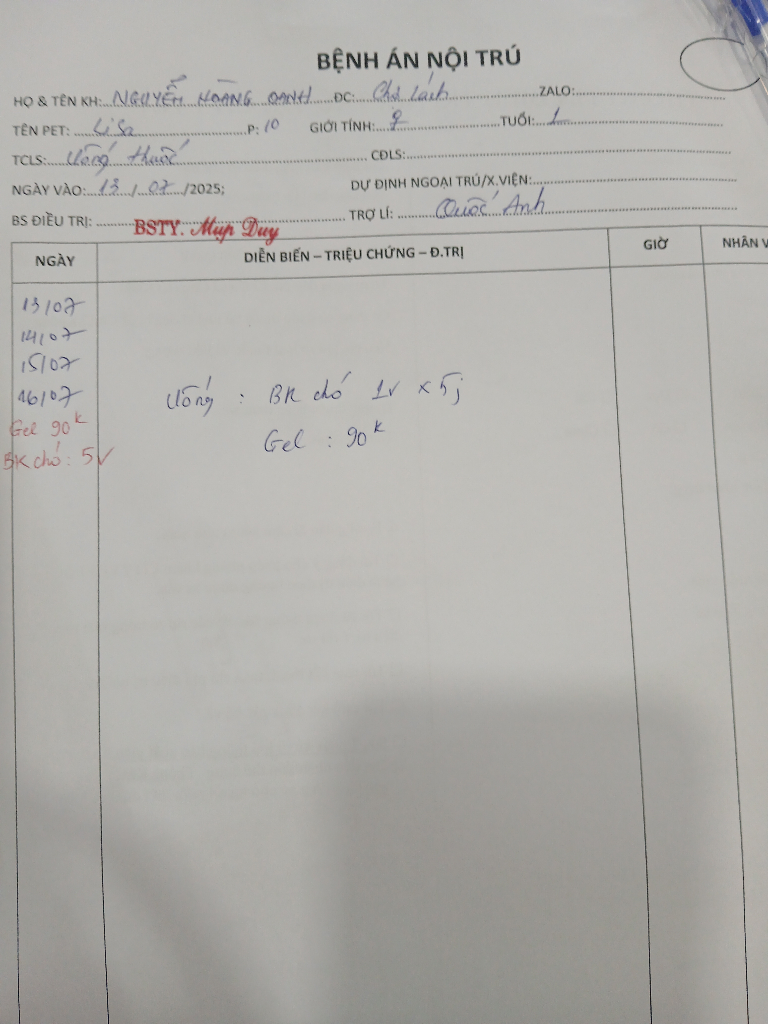 BỆNH ÁN NỘI TRÚ
HỌ & TÊN KH: NGUYỄN HOÀNG OANH ĐC: Chợ Lách ZALO:
TÊN PET: LiSa P: 10 GIỚI TÍNH: ♀ TUỔI: 1
TCLS: Uống thuốc CĐLS:
NGÀY VÀO: 13 / 07 /2025; DỰ ĐỊNH NGOẠI TRÚ/X.VIỆN:
BS ĐIỀU TRỊ: BSTY. Mup Duy TRỢ LÍ: Quốc Anh
NGÀY DIỄN BIẾN – TRIỆU CHỨNG – Đ.TRỊ GIỜ NHÂN V
13/07
14/07
15/07
16/07 Uống : BK chó 1v x 5j
Gel 90k Gel : 90k
BK chó : 5v